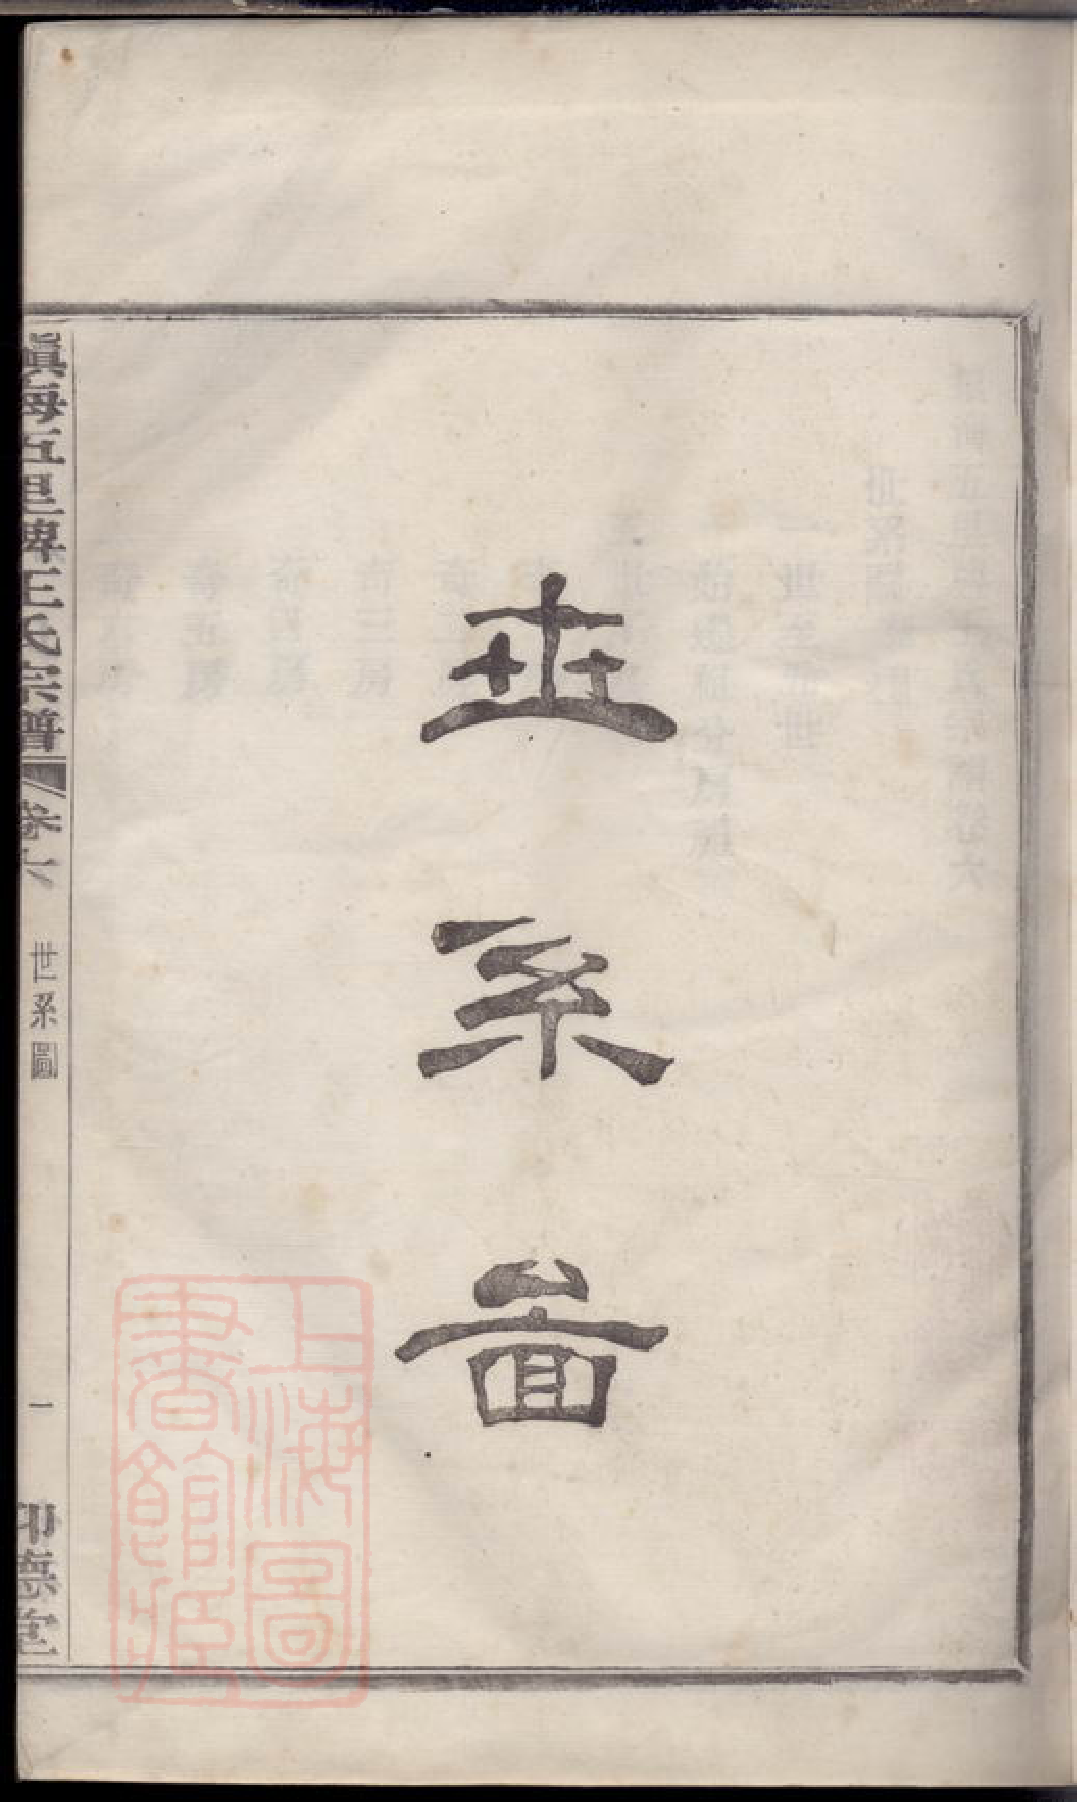 世系圖
鎮海五里牌王氏宗譜
卷六
世系圖
一
上海圖
書館藏